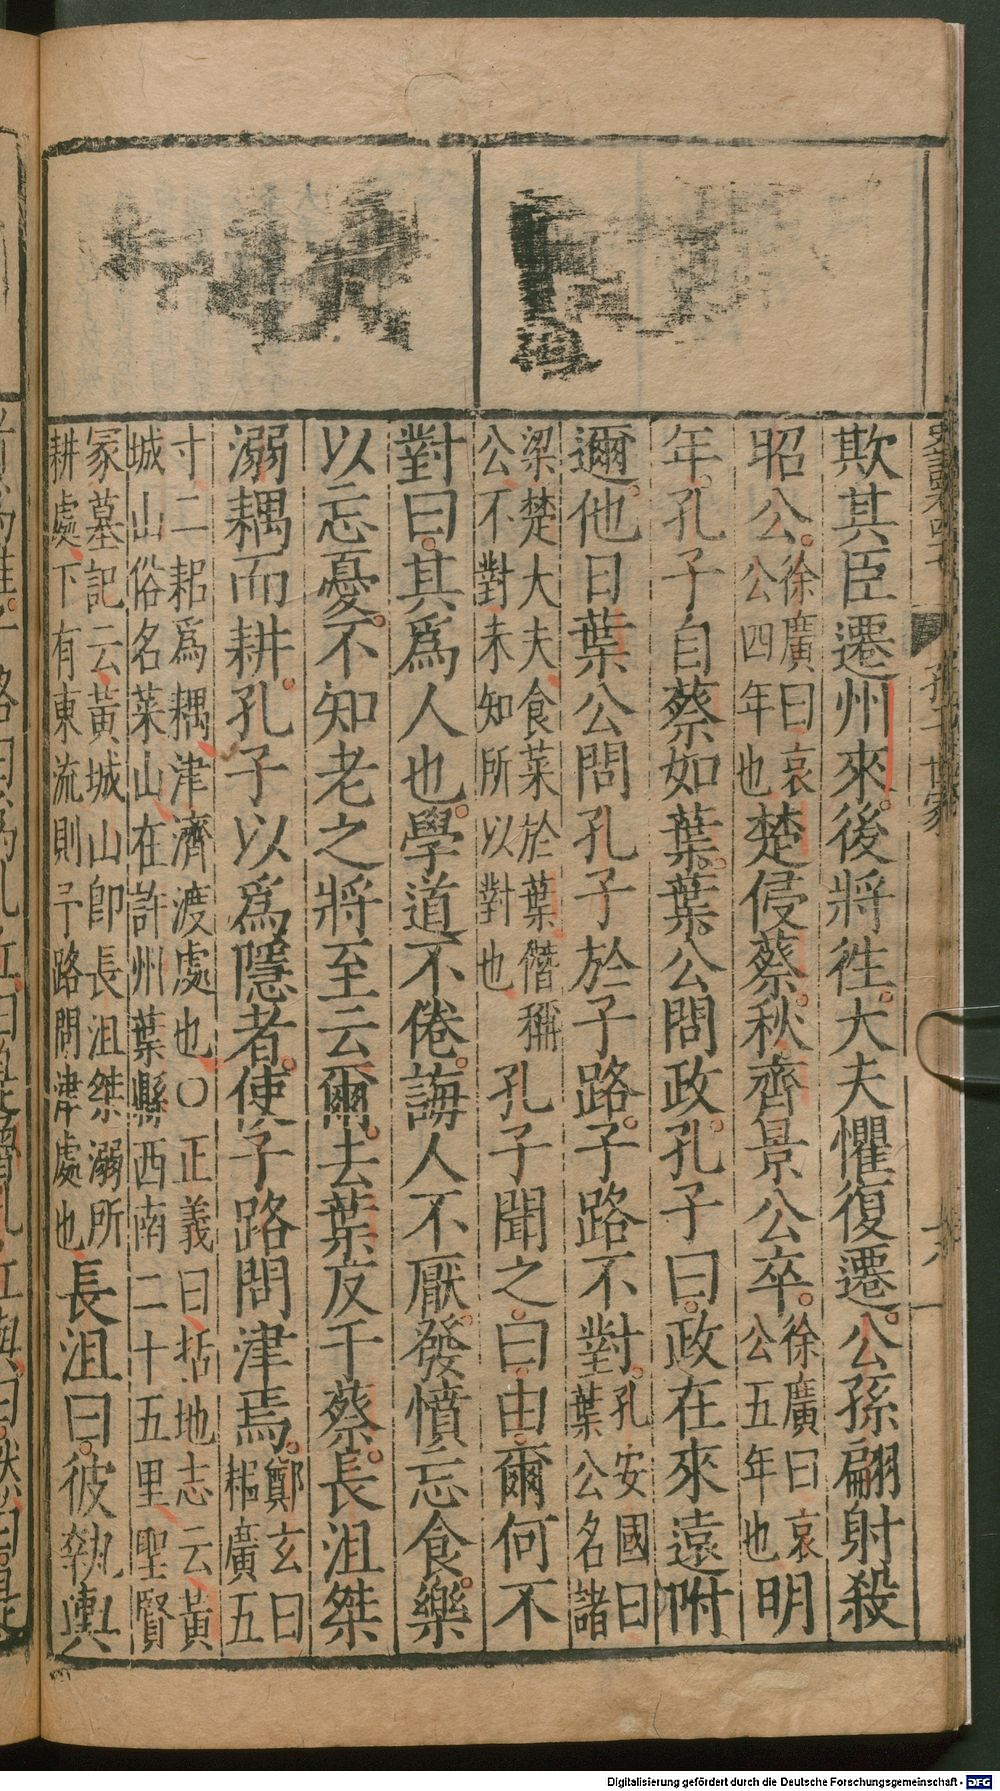 欺其臣遷州來後將徃大夫懼復遷公孫翩射殺
昭公徐廣曰哀公四年也楚侵蔡秋齊景公卒徐廣曰哀公五年也明
年孔子自蔡如葉葉公問政孔子曰政在來遠附
邇他日葉公問孔子於子路子路不對孔安國曰葉公名諸
梁楚大夫食菜於葉僭稱公不對未知所以對也孔子聞之曰由爾何不
對曰其爲人也學道不倦誨人不厭發憤忘食樂
以忘憂不知老之將至云爾去葉反于蔡長沮桀
溺耦而耕孔子以爲隱者使子路問津焉鄭玄曰耜廣五
寸二耜爲耦津濟渡處也〇正義曰括地志云黃城山俗名菜山在許州葉縣西南二十五里聖賢
冢墓記云黃城山即長沮桀溺所耕處下有東流則子路問津處也長沮曰彼執輿
孔子世家
六
Digitalisierung gefördert durch die Deutsche Forschungsgemeinschaft - DFG